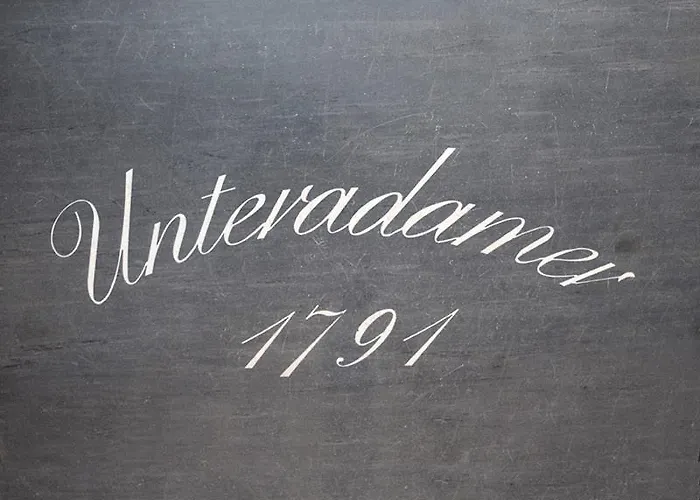 Unteradamer
1791